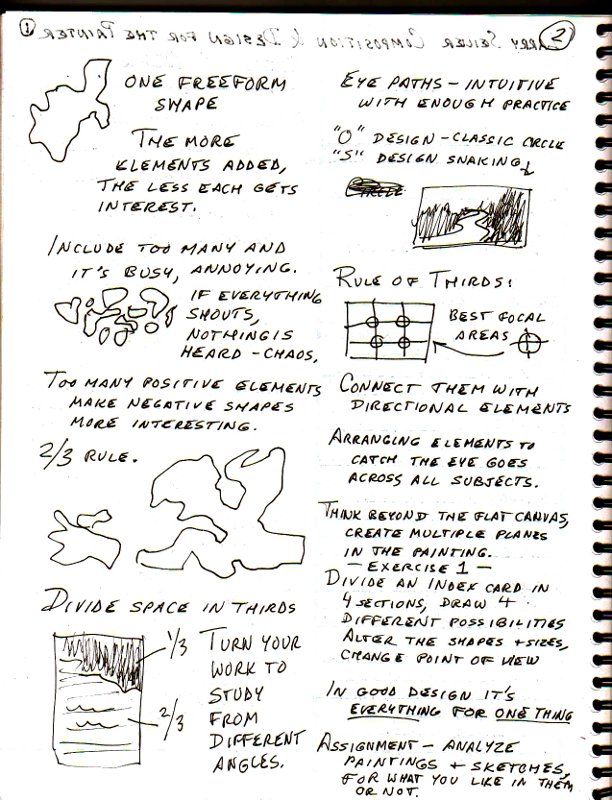 1
2
Larry Seiler Composition & Design for the Painter
ONE FREEFORM
SHAPE
THE MORE
ELEMENTS ADDED,
THE LESS EACH GETS
INTEREST.
INCLUDE TOO MANY AND
IT'S BUSY, ANNOYING.
IF EVERYTHING
SHOUTS,
NOTHING IS
HEARD - CHAOS,
TOO MANY POSITIVE ELEMENTS
MAKE NEGATIVE SHAPES
MORE INTERESTING.
2/3 RULE.
DIVIDE SPACE IN THIRDS
1/3
2/3
TURN YOUR
WORK TO
STUDY
FROM
DIFFERENT
ANGLES.
EYE PATHS - INTUITIVE
WITH ENOUGH PRACTICE
"O" DESIGN - CLASSIC CIRCLE
"S" DESIGN SNAKING
CIRCLE
RULE OF THIRDS:
BEST FOCAL
AREAS
CONNECT THEM WITH
DIRECTIONAL ELEMENTS
ARRANGING ELEMENTS TO
CATCH THE EYE GOES
ACROSS ALL SUBJECTS.
THINK BEYOND THE FLAT CANVAS,
CREATE MULTIPLE PLANES
IN THE PAINTING.
- EXERCISE 1 -
DIVIDE AN INDEX CARD IN
4 SECTIONS, DRAW 4
DIFFERENT POSSIBILITIES
ALTER THE SHAPES + SIZES,
CHANGE POINT OF VIEW
IN GOOD DESIGN IT'S
EVERYTHING FOR ONE THING
ASSIGNMENT - ANALYZE
PAINTINGS + SKETCHES,
FOR WHAT YOU LIKE IN THEM
OR NOT.